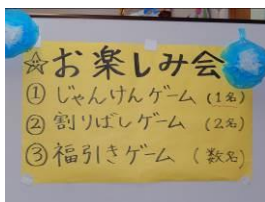 ☆お楽しみ会
① じゃんけんゲーム (1名)
② 割りばしゲーム (2名)
③ 福引きゲーム (数名)